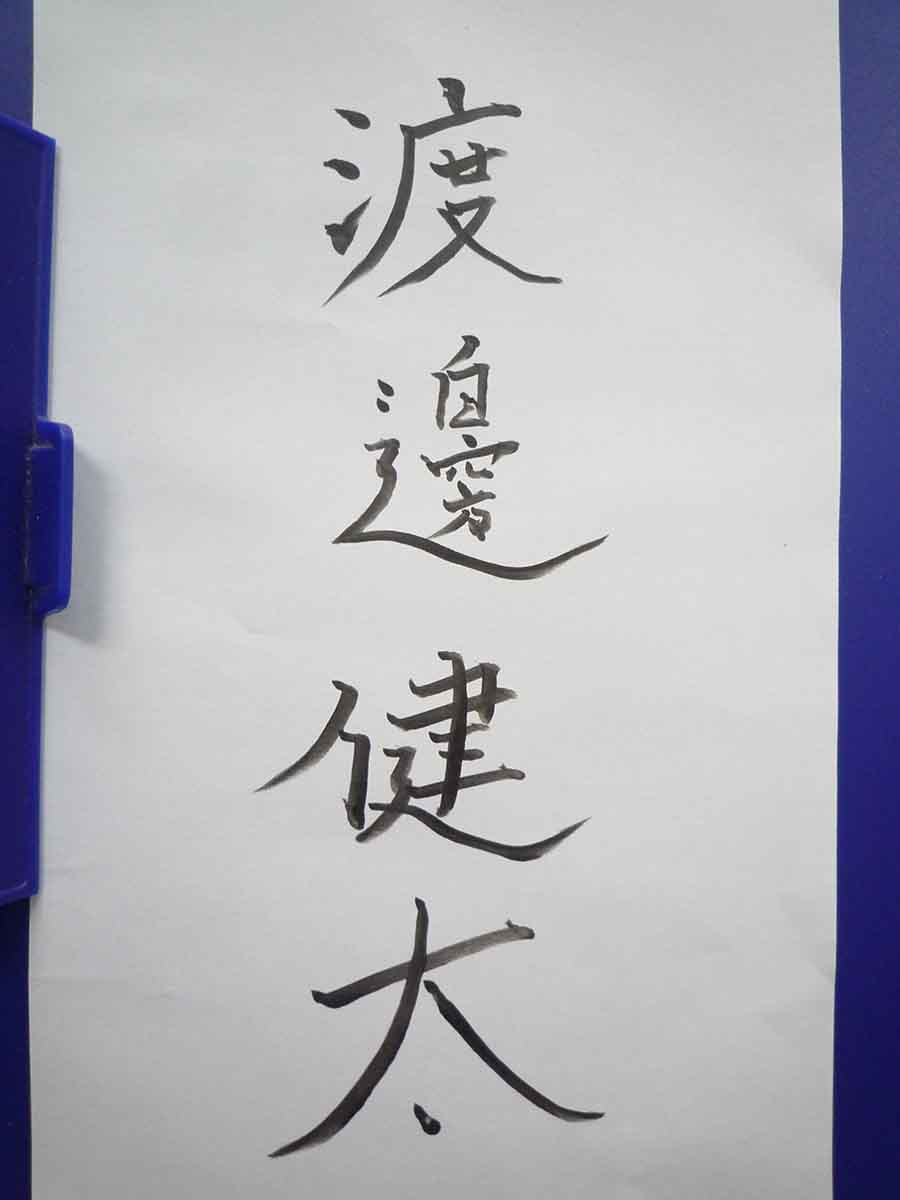 渡邊健太